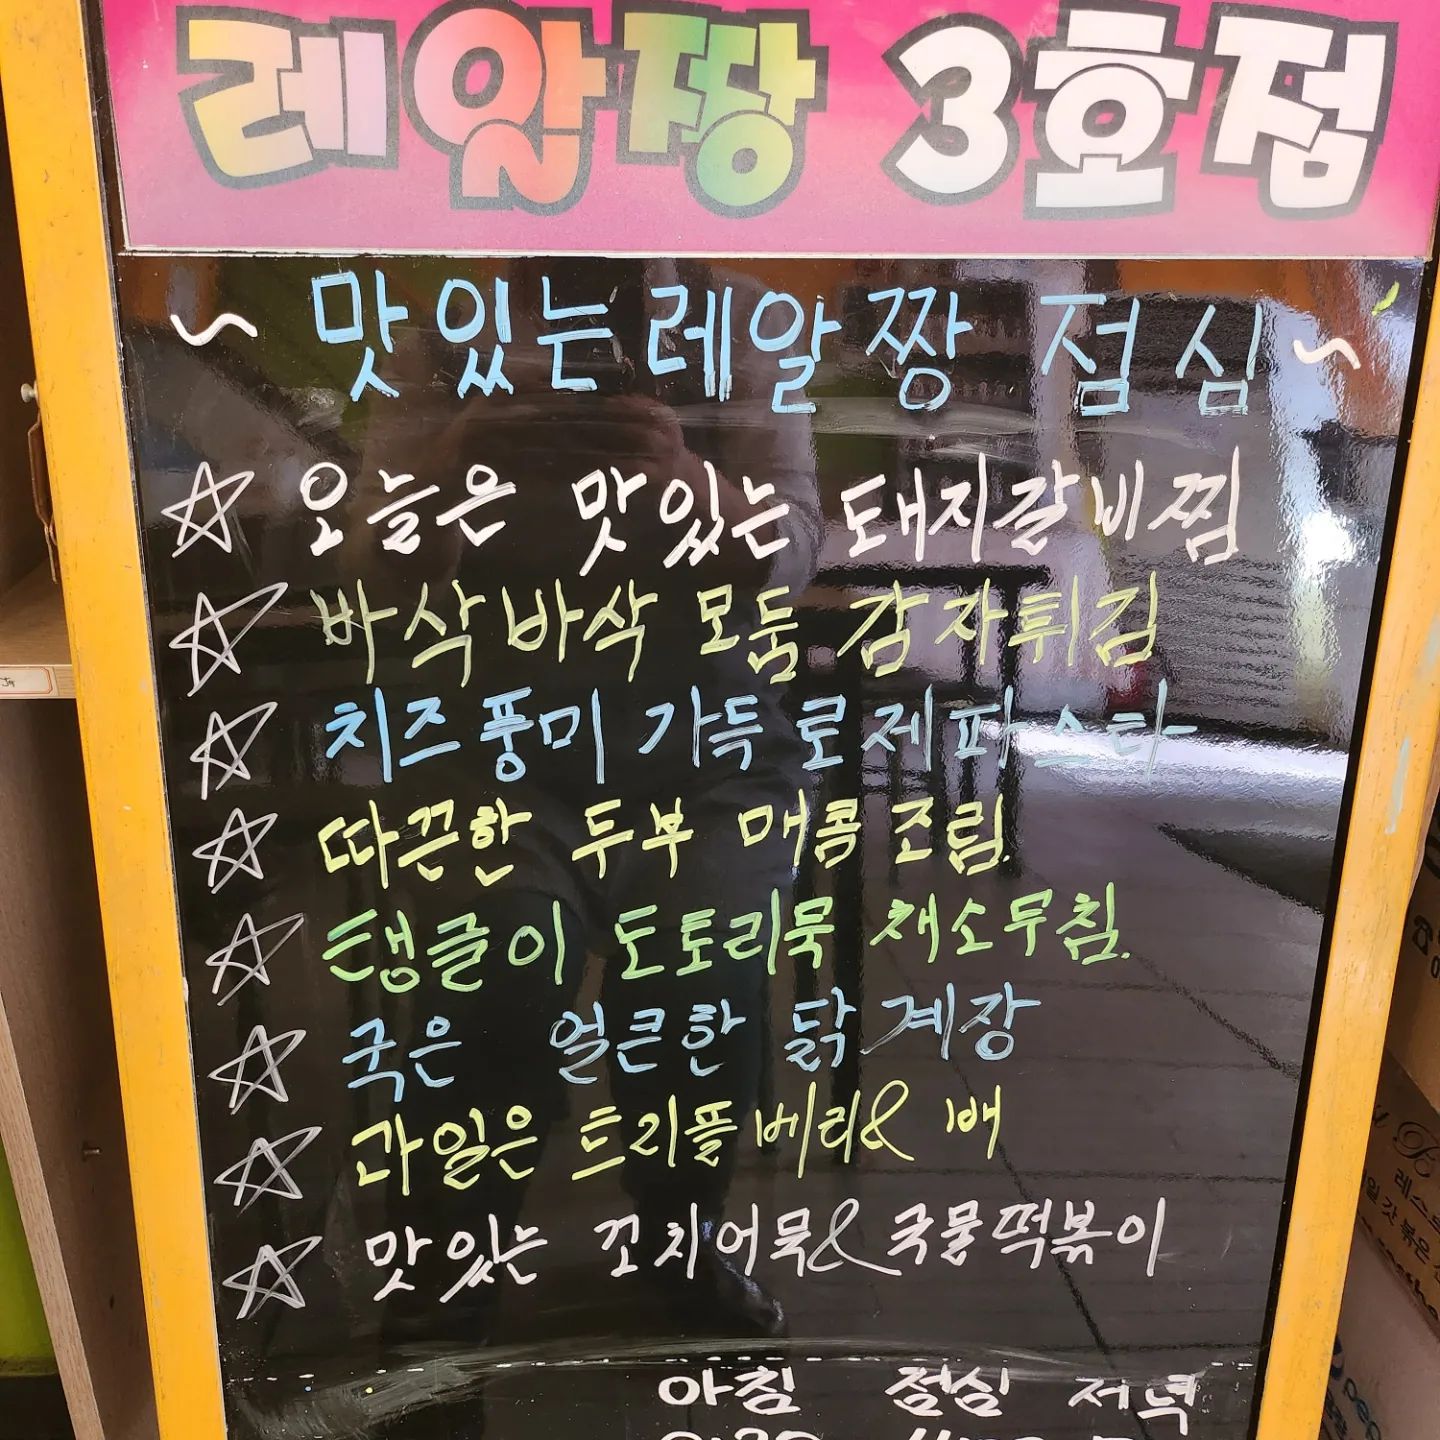 레알짱 3호점
~ 맛있는 레알짱 점심 ~
☆ 오늘은 맛있는 돼지갈비찜
☆ 바삭바삭 모둠 감자튀김
☆ 치즈풍미 가득 로제파스타
☆ 따끈한 두부 매콤조림.
☆ 탱글이 도토리묵 채소무침.
☆ 국은 얼큰한 닭계장
☆ 과일은 트리플베리& 배
☆ 맛있는 꼬치어묵&국물떡볶이
아침 점심 저녁